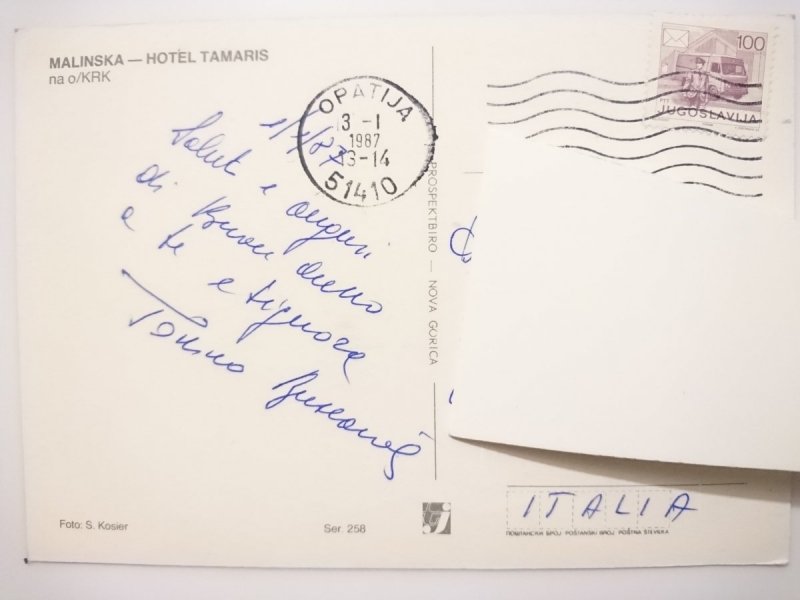 MALINSKA — HOTEL TAMARIS
na o/KRK
OPATIJA
3 -1
1987
13-14
51410
100
PTT
JUGOSLAVIJA
1/1/87
Saluti e auguri
di Buon Anno
a te e signora
Tonino
PROSPEKTBIRO — NOVA GORICA
ITALIA
ПОШТАНСКИ БРОЈ POŠTANSKI BROJ POŠTNA ŠTEVILKA
Foto: S. Kosier
Ser. 258